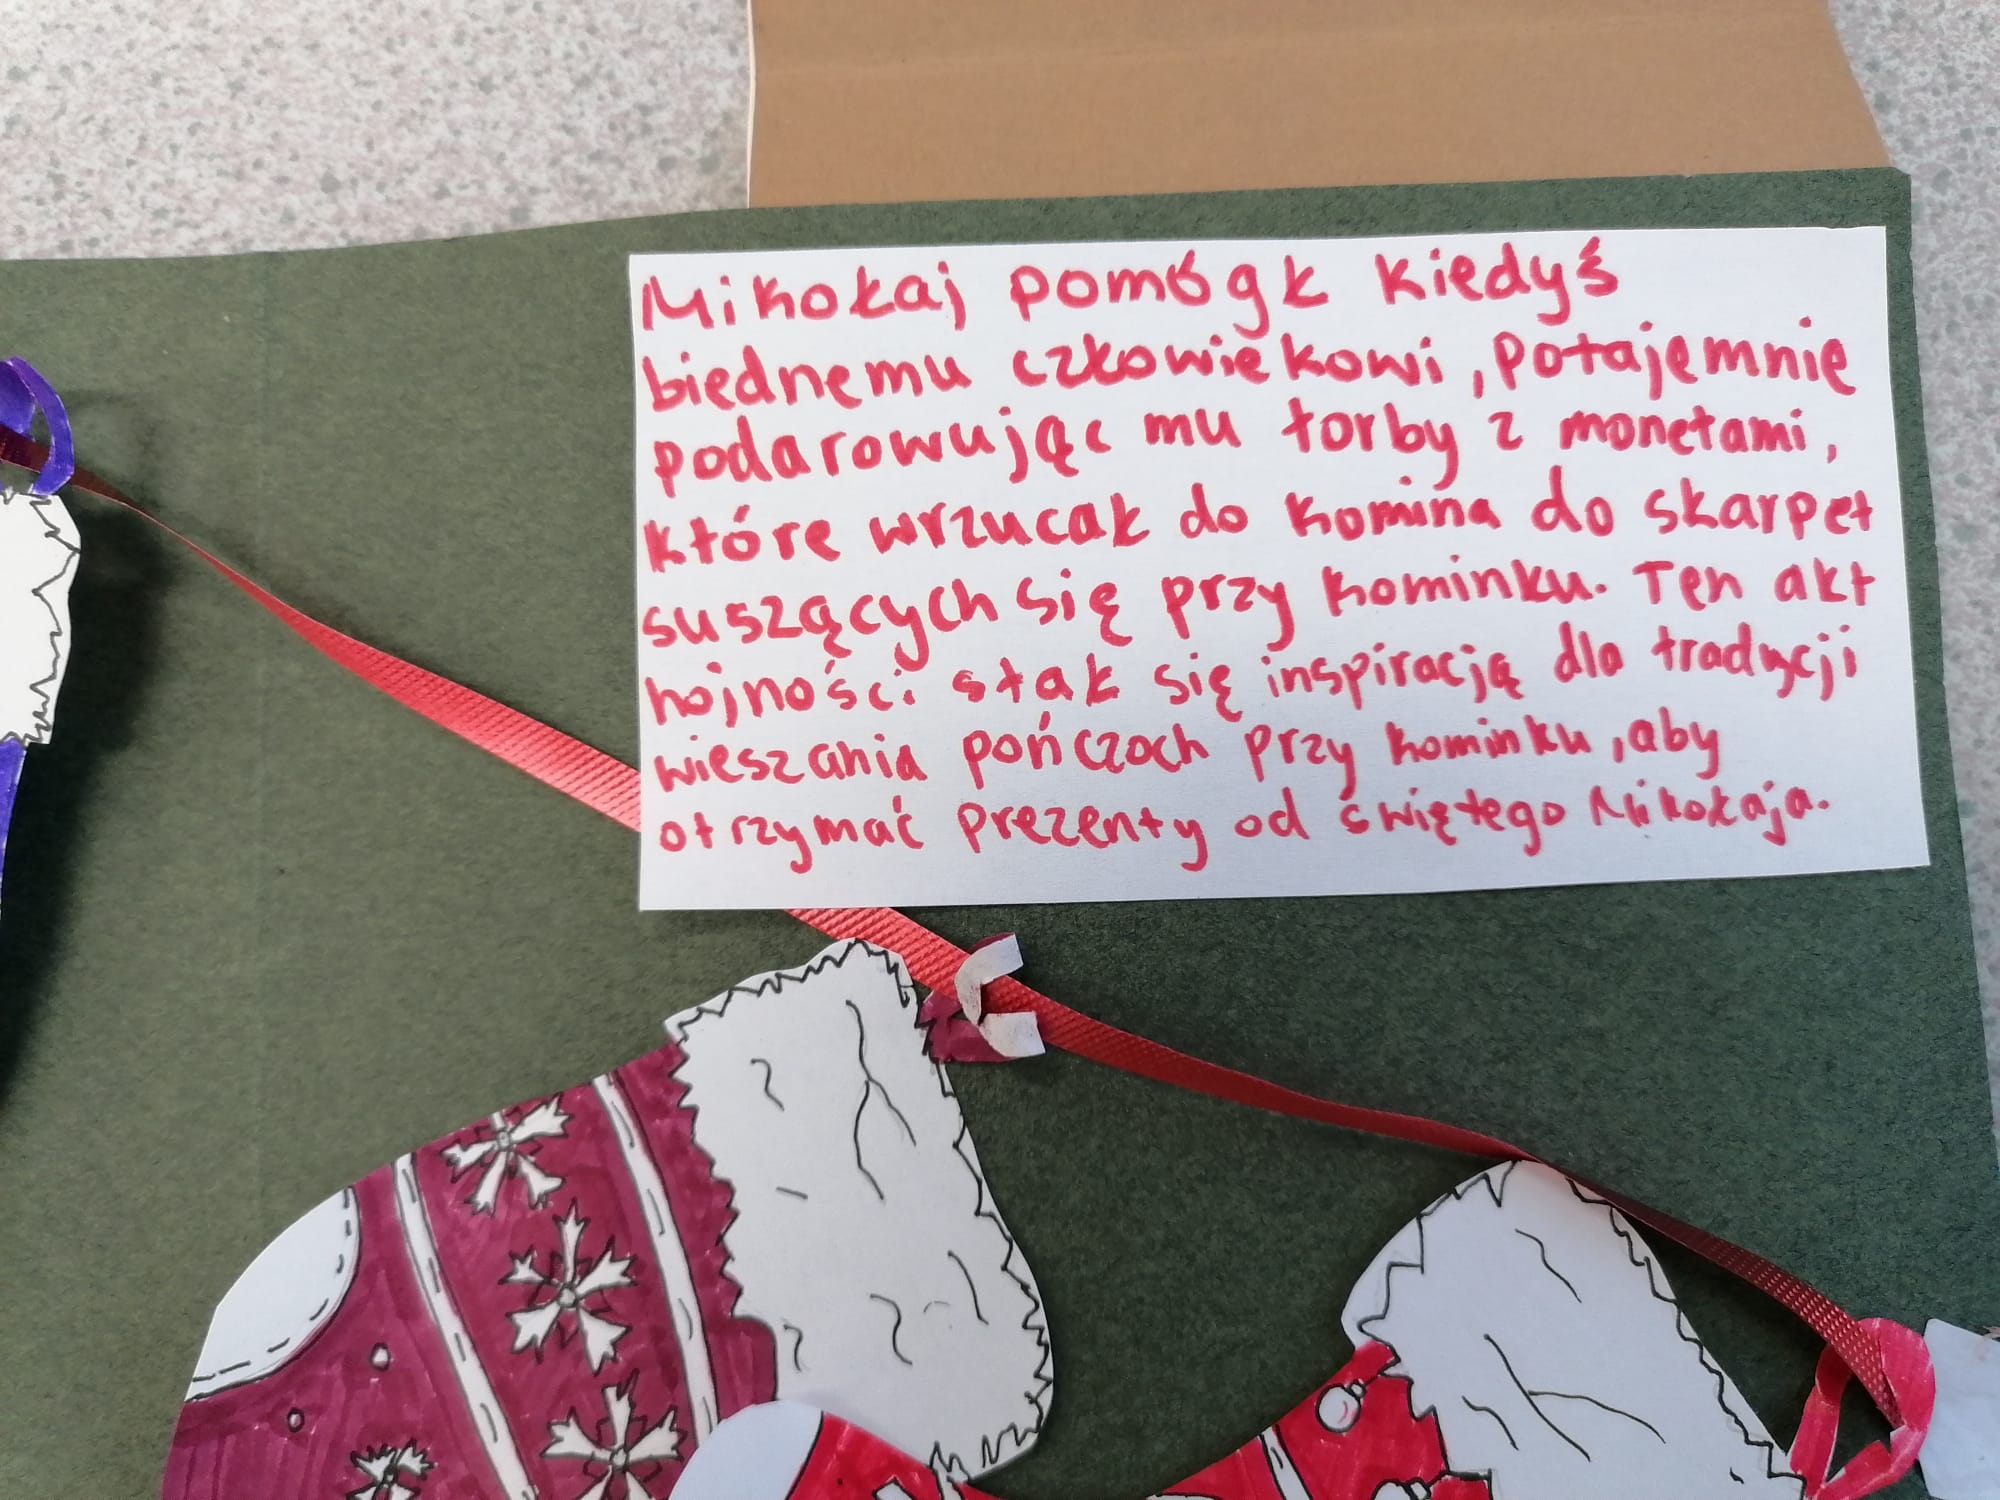 Mikołaj pomógł kiedyś
biednemu człowiekowi, potajemnie
podarowując mu torby z monetami,
które wrzucał do komina do skarpet
suszących się przy kominku. Ten akt
hojności stał się inspiracją dla tradycji
wieszania pończoch przy kominku, aby
otrzymać prezenty od świętego Mikołaja.